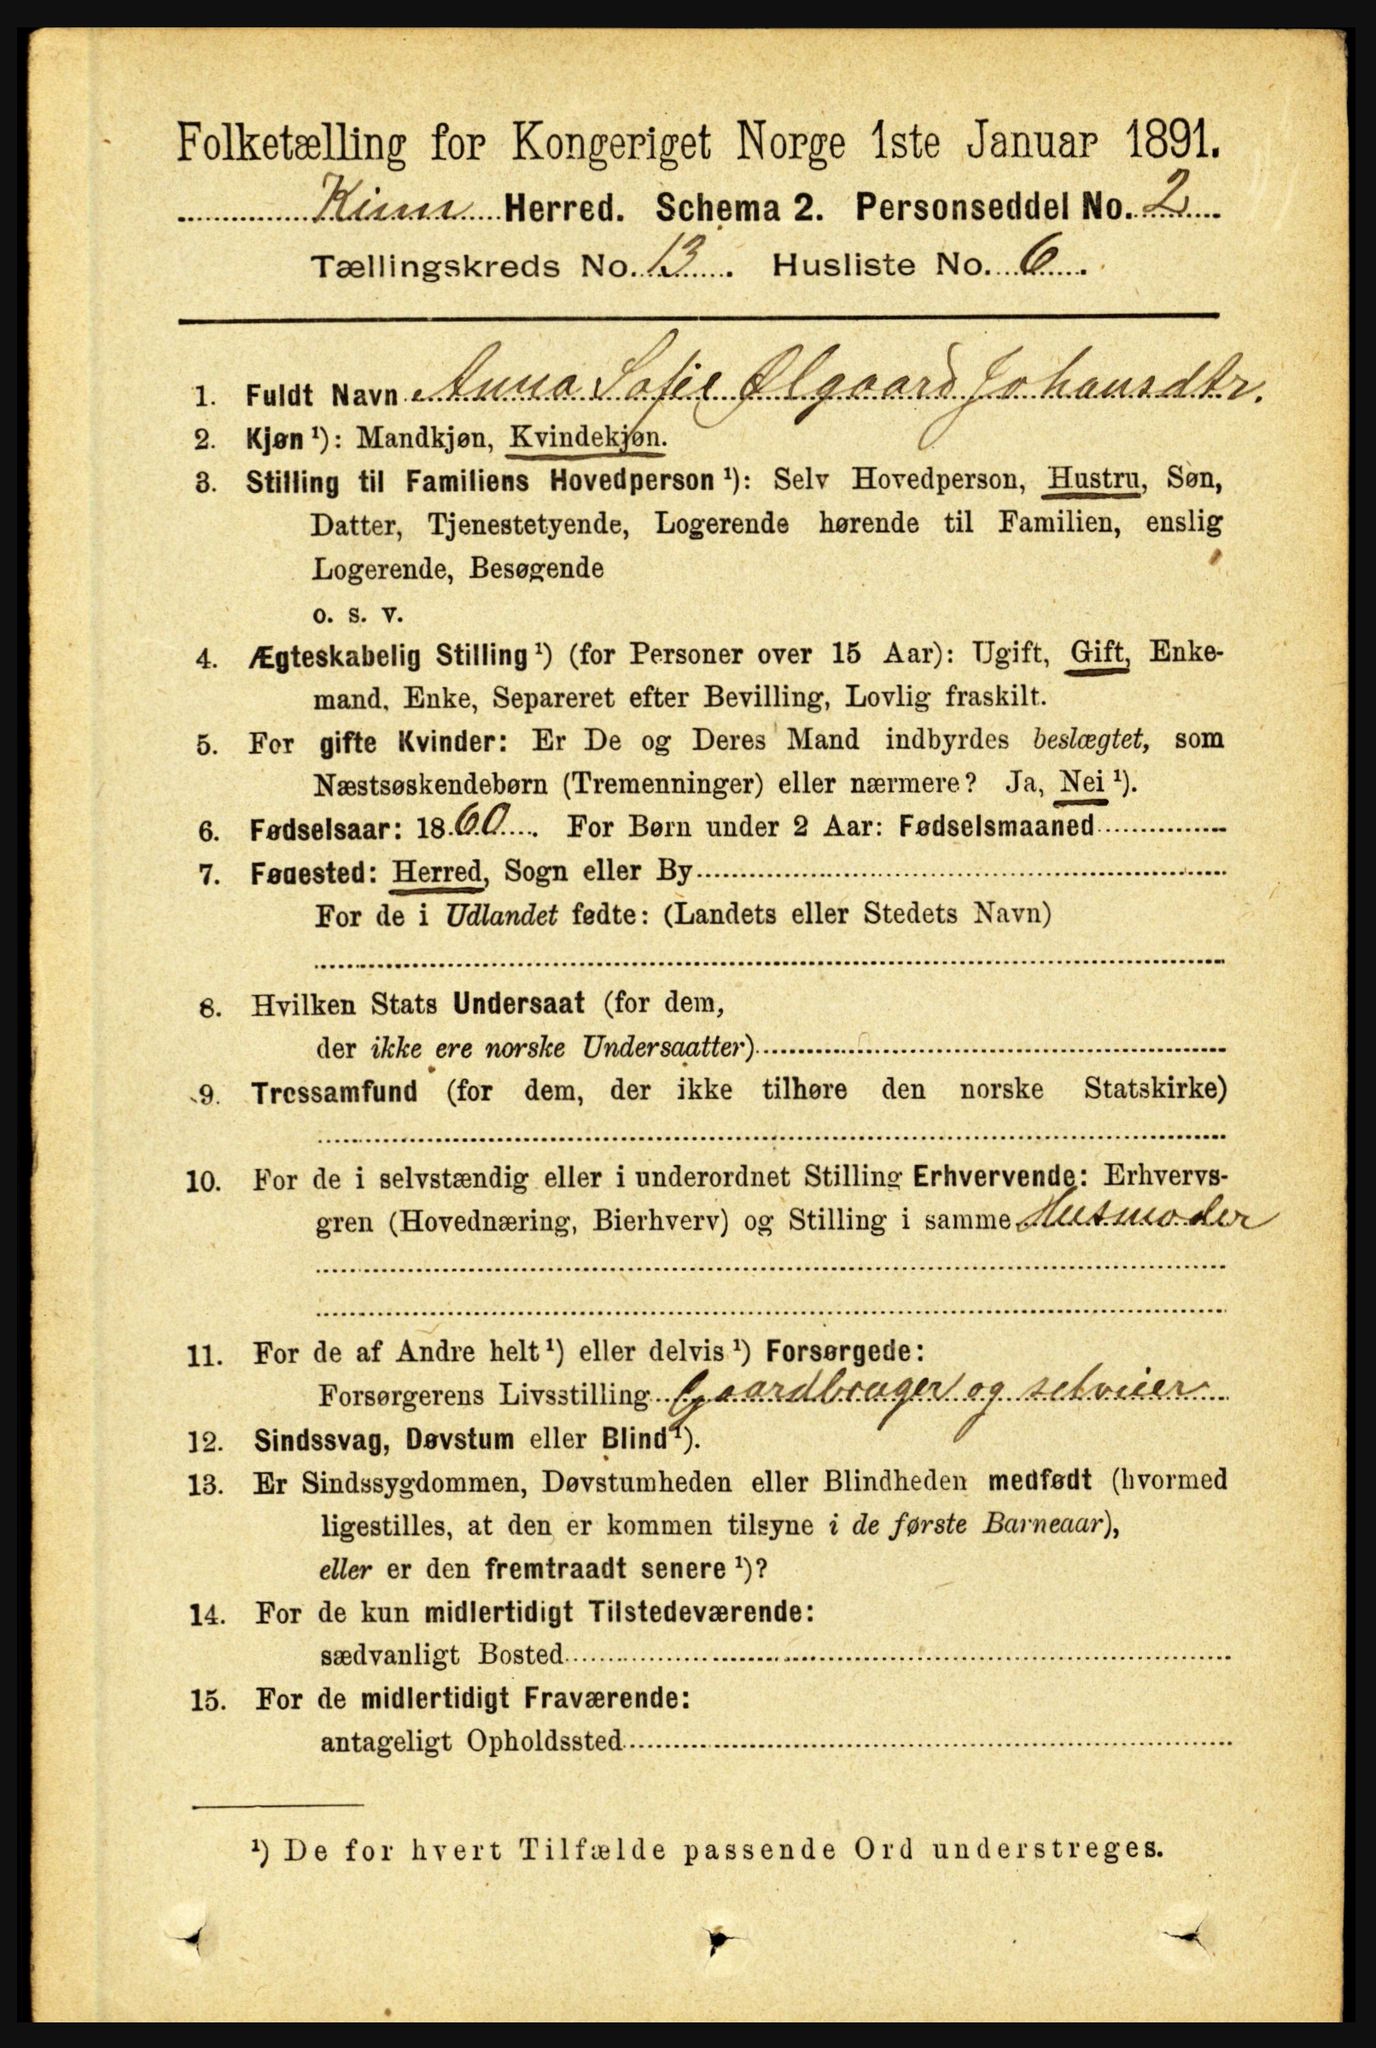 Folketælling for Kongeriget Norge 1ste Januar 1891.
Kinn Herred. Schema 2. Personseddel No. 2
Tællingskreds No. 13. Husliste No. 6.
1. Fuldt Navn Anna Sofie Ølgaard Johansdtr.
2. Kjøn ¹): Mandkjøn, Kvindekjøn.
3. Stilling til Familiens Hovedperson ¹): Selv Hovedperson, Hustru, Søn,
Datter, Tjenestetyende, Logerende hørende til Familien, enslig
Logerende, Besøgende
o. s. v.
4. Ægteskabelig Stilling ¹) (for Personer over 15 Aar): Ugift, Gift, Enke-
mand, Enke, Separeret efter Bevilling, Lovlig fraskilt.
5. For gifte Kvinder: Er De og Deres Mand indbyrdes beslægtet, som
Næstsøskendebørn (Tremenninger) eller nærmere? Ja, Nei ¹).
6. Fødselsaar: 1860. For Børn under 2 Aar: Fødselsmaaned
7. Fødested: Herred, Sogn eller By
For de i Udlandet fødte: (Landets eller Stedets Navn)
8. Hvilken Stats Undersaat (for dem,
der ikke ere norske Undersaatter)
9. Trossamfund (for dem, der ikke tilhøre den norske Statskirke)
10. For de i selvstændig eller i underordnet Stilling Erhvervende: Erhvervs-
gren (Hovednæring, Bierhverv) og Stilling i samme Husmoder
11. For de af Andre helt ¹) eller delvis ¹) Forsørgede:
Forsørgerens Livsstilling Gaardbruger og selveier
12. Sindssvag, Døvstum eller Blind ¹).
13. Er Sindssygdommen, Døvstumheden eller Blindheden medfødt (hvormed
ligestilles, at den er kommen tilsyne i de første Barneaar),
eller er den fremtraadt senere ¹)?
14. For de kun midlertidigt Tilstedeværende:
sædvanligt Bosted
15. For de midlertidigt Fraværende:
antageligt Opholdssted
¹) De for hvert Tilfælde passende Ord understreges.